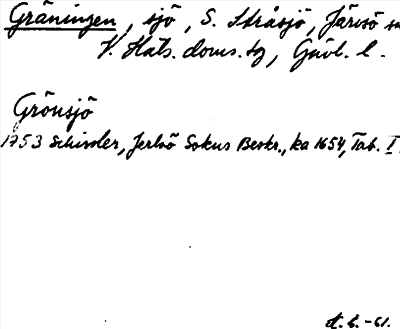 Gräningen, sjö, S. Stråsjö, Järvsö sn
V. Häls. doms. tg, Gävl. l.
Grönsjö
1753 Schissler, Jerfsö Sokns Beskr., ka 1654, Tab. I.
-61.